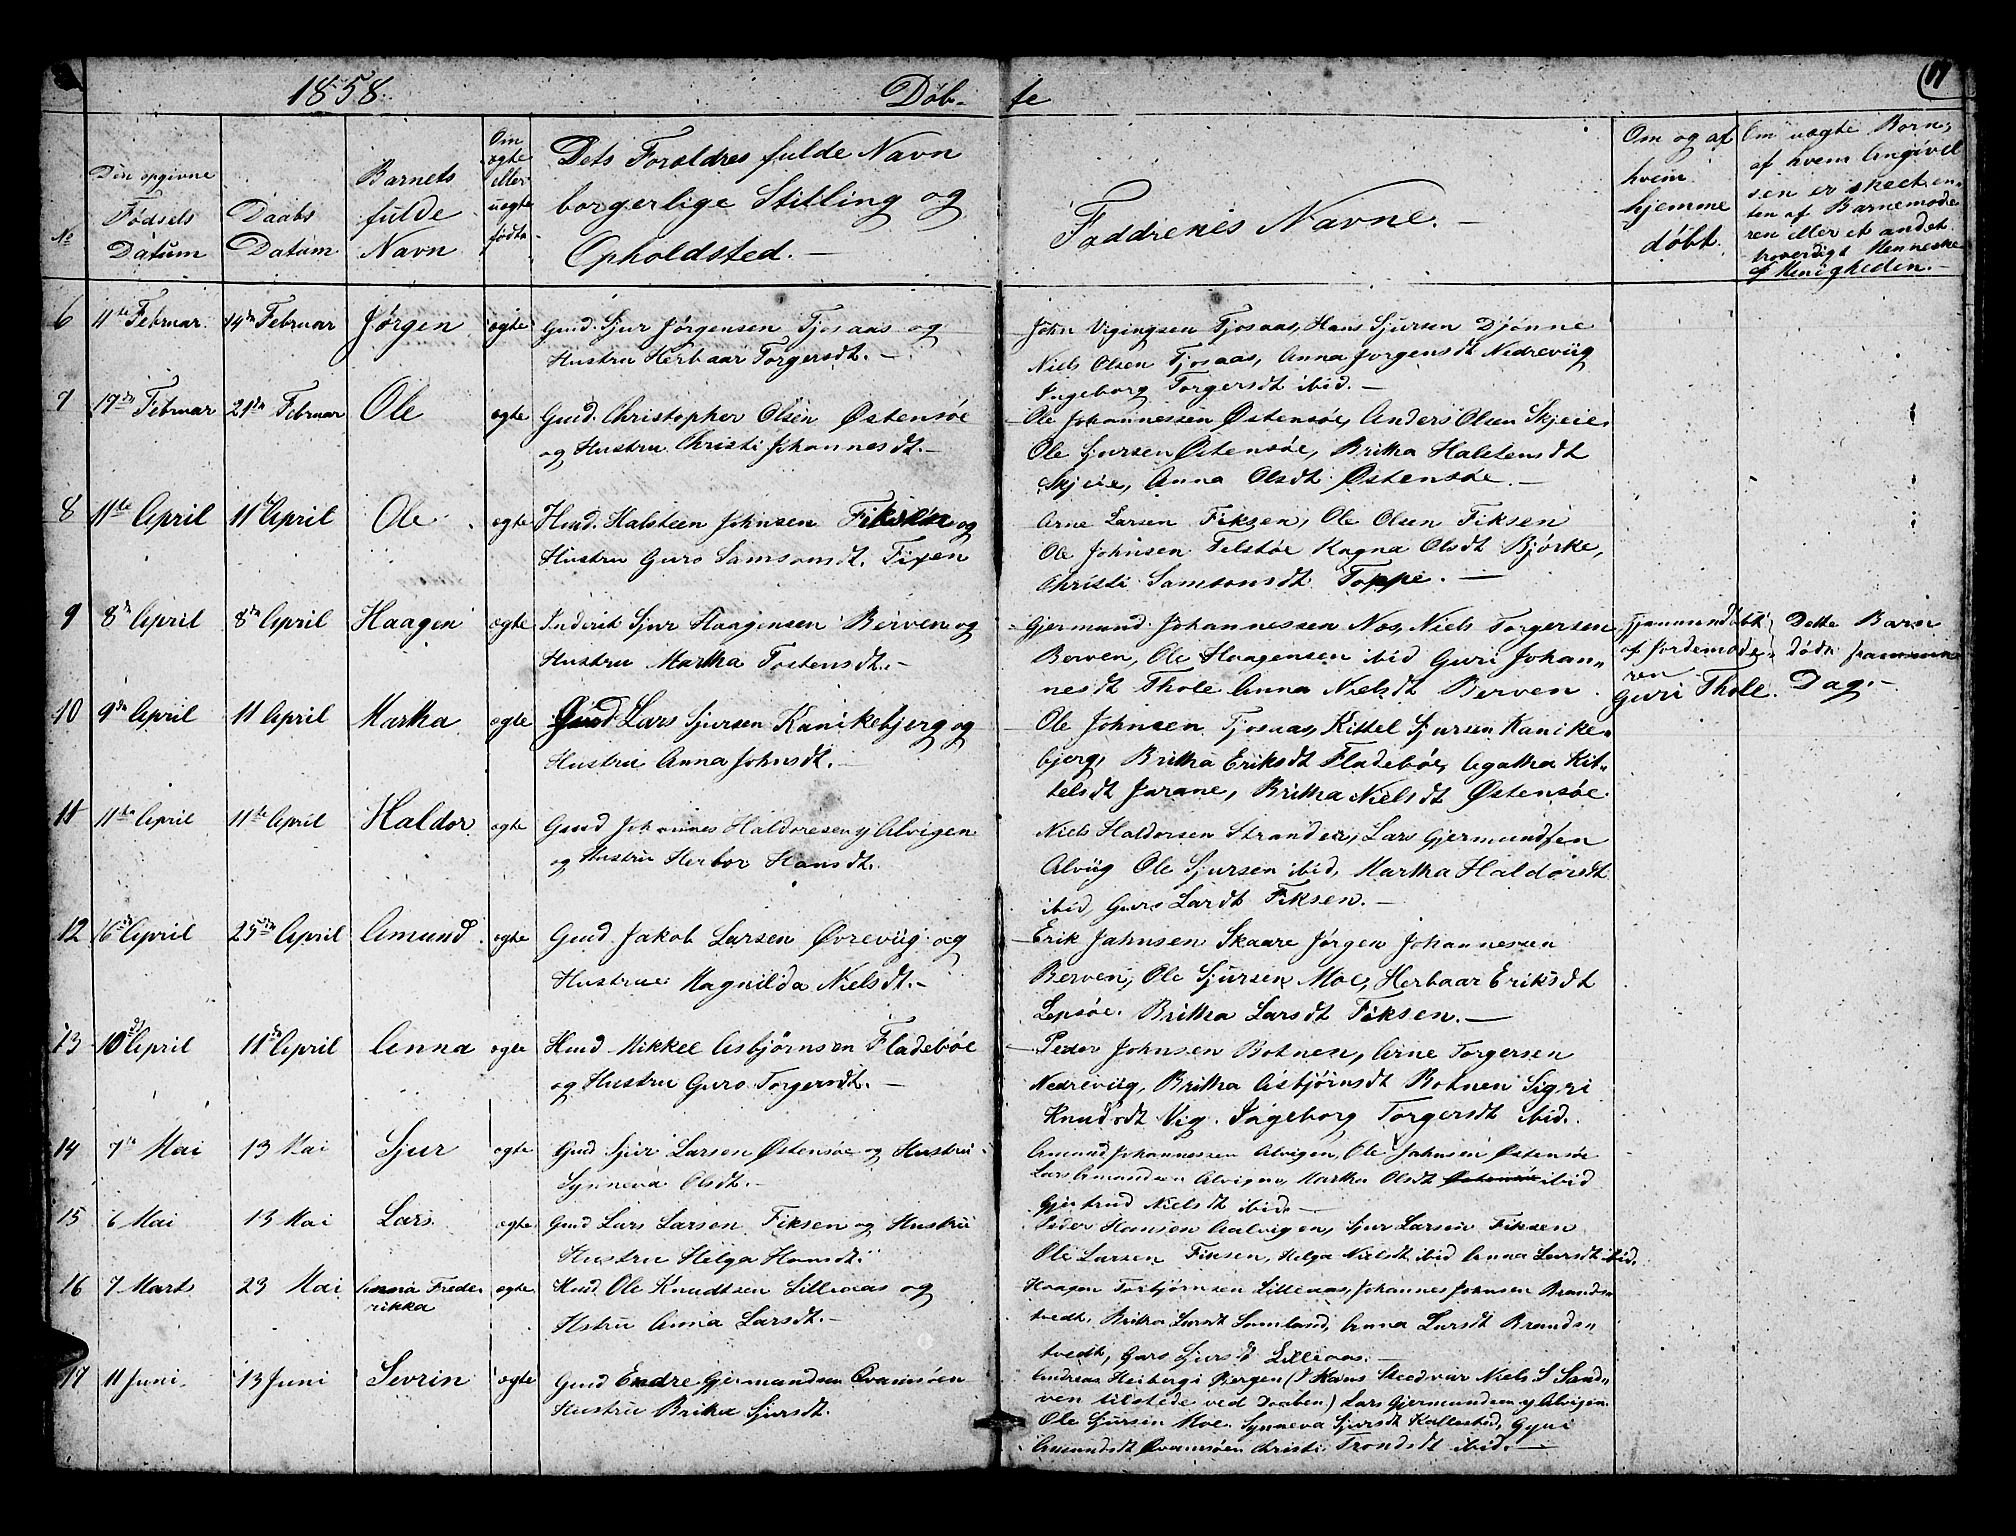 1858. Døb- te
No
Den opgivne Fødsels Datum
Daabs Datum
Barnets fulde Navn
Om ægte eller uægte født.
Dets Forældres fulde Navn borgerlige Stilling og Opholdsted.-
Faddrenes Navne.-
Om og af hvem hjemmedøbt.
Om uægte Børn, af hvem Angivelsen er skeet enten af Barnemoderen eller et andet troverdigt Menneske af Menigheden.-
6 11te Februar. 14de Februar Jørgen ægte Gmd. Sjur Jørgensen Tjosaas og
Hustru Herbaar Torgersdt.-
John Vigingsen Tjosaas, Hans Sjursen Djønne
Niels Olsen Tjosaas, Anna Jørgensdt Nedreviig
Ingeborg Torgersdt ibid.-
7 19de Februar 21de Februar Ole ægte Gmd. Christopher Olsen Østensöe
og Hustru Christi Johannesdt.-
Ole Johannessen Østensöe, Anders Olsen Skjeie.
Ole Sjursen Østensöe, Britha Halstensdt
Skjeie, Anna Olsdt Østensöe.-
8 11te April 11te April Ole ægte Hmd. Halsteen Johnsen Fiksen og
Hustru Guro Samsonsdt. Fixen
Arne Larsen Fiksen, Ole Olsen Fiksen
Ole Johnsen Ragna Olsdt Bjørke,
Christi Samsonsdt Toppe.-
9 8de April 8de April Haagen ægte Inderst Sjur Haagensen Berven og
Hustru Martha Tostensdt.-
Gjermund Johannessen Nes, Niels Torgersen
Berven, Ole Haagensen ibid Guri Johan-
nesdt Thole Anna Nielsdt Berven
Hjemmedøbt af Jordemoderen Guri Thole.
Dette Barn døde samme Dag.-
10 9de April 11 April Martha ægte Gmd Lars Sjursen Kanikebjerg og
Hustru Anna Johnsdt.-
Ole Johnsen Tjosaas, Kittel Sjursen Kanike-
bjerg, Britha Eriksdt Fladebøe, Agatha Kit-
telsdt Jarane, Britha Nielsdt Østensöe
11 11te April 11te April Haldor ægte Gmd Johannes Haldorsen y Alvigen
og Hustru Herbor Hansdt.
Niels Haldorsen Stranden, Lars Gjermundsen
Alviig Ole Sjursen ibid, Martha Haldorsdt
ibid, Guro Larsdt Fiksen.-
12 16de April 25de April Amund ægte Gmd Jakob Larsen Øvreviig og
Hustrue Magnilda Nielsdt.-
Erik Jahnsen Skaare Jørgen Johannessen
Berven, Ole Sjursen Moe, Herbaar Eriksdt
Lepsöe. Britha Larsdt Fiksen.-
13 10de April 11te April Anna ægte Hmd Mikkel Asbjørnsen Fladebøe
og Hustru Guro Torgersdt.-
Peder Johnsen Botnen, Arne Torgersen
Nedreviig, Britha Asbjørnsdt Botnen Sigri
Knudsdt Vig. Ingeborg Torgersdt ibid.
14 7de Mai 13 Mai Sjur ægte Gmd Sjur Larsen Østensöe og Hustru
Synneva Olsdt.-
Amund Johannessen Alvigen, Ole Jahnsen Østensöe
Lars Amundsen Alvigen, Martha Olsdt Østensöe ibid
Gjertrud Nielsdt ibid.-
15 6 Mai 13 Mai Lars ægte Gmd Lars Larsen Fiksen og Hustru
Hustru Helga Hansdt.
Peder Hansen Aalvigen, Sjur Larsen Fiksen
Ole Larsen Fiksen, Helga Nielsdt ibid Anna Larsdt ibid.
16 7 Marts 23 Mai Anna Frederikka ægte Hmd. Ole Knudtsen Lilleaas og
Hstru Anna Larsdt.-
Haagen Torbjørnsen Lilleaas, Johannes Johnsen Brands-
tvedt, Britha Larsdt Samland, Anna Larsdt Brands-
tvedt, Guro Sjursdt Lilleaas.-
17 11 Juni 13 Juni Sevrin ægte Gmd Endre Gjermundsen Qvamsöen
Hustru Britha Sjursdt.
Andreas Heiberg i Bergen (I Hans Steed var Niels S Sand-
ven tilstede ved Daaben) Lars Gjermundsen y Alvigen
Ole Sjursen Moe. Synneva Sjursdt Kallestad, Gyri
Amundsdt Qvamsöen Christi Trondsdt ibid.-